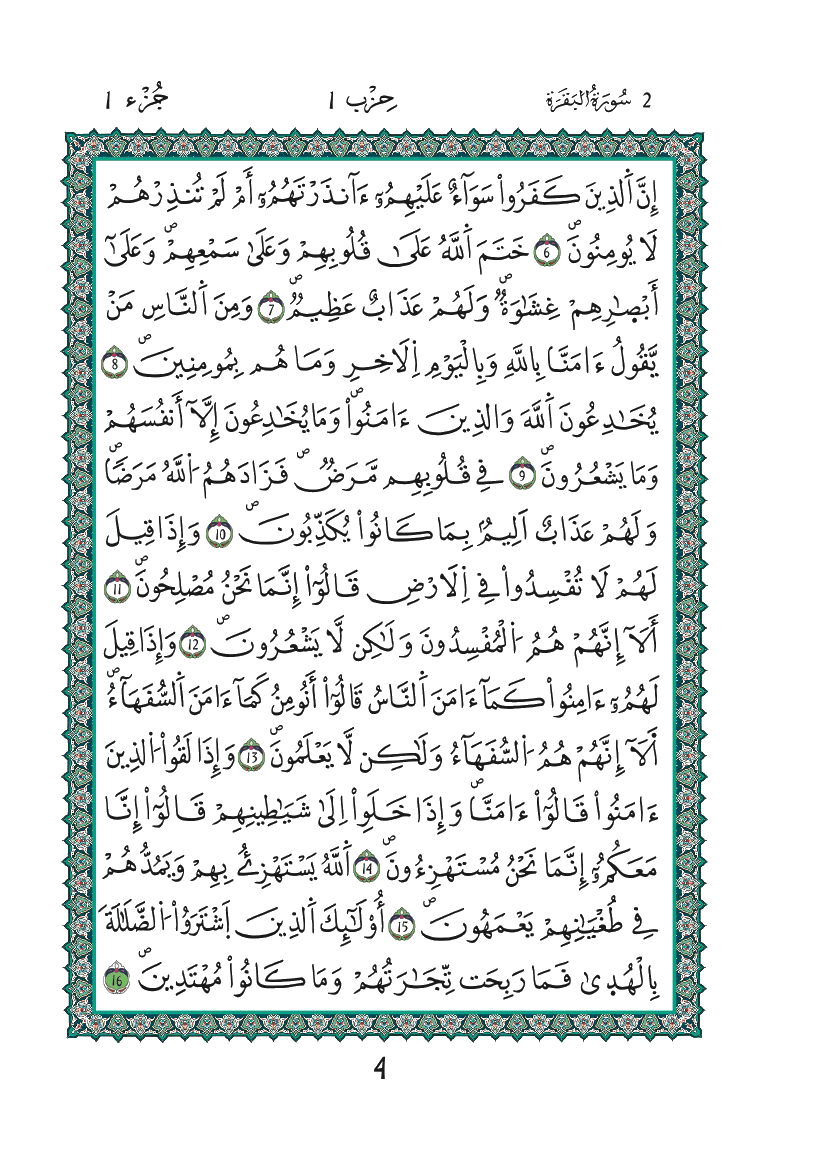 2 سُورَةُ البَقَرَة حِزْب 1 جُزْء 1
إِنَّ اَ۬لذِينَ كَفَرُواْ سَوَآءٌ عَلَيْهِمُۥٓ ءَآنذَرْتَهُمُۥٓ أَمْ لَمْ تُنذِرْهُمْ
لَا يُومِنُونَۖ 6 خَتَمَ اَ۬للَّهُ عَلَىٰ قُلُوبِهِمْ وَعَلَىٰ سَمْعِهِمْۖ وَعَلَىٰٓ
أَبْصٰ۪رِهِمْ غِشَٰوَةٞۖ وَلَهُمْ عَذَابٌ عَظِيمٞۖ 7 وَمِنَ اَ۬لنَّاسِ مَنْ
يَّقُولُ ءَامَنَّا بِاللَّهِ وَبِالْيَوْمِ اِ۬لَاخِرِ وَمَا هُم بِمُومِنِينَۖ 8
يُخَٰدِعُونَ اَ۬للَّهَ وَالذِينَ ءَامَنُواْۖ وَمَا يُخَٰدِعُونَ إِلَّآ أَنفُسَهُمْ
وَمَا يَشْعُرُونَۖ 9 فِے قُلُوبِهِم مَّرَضٞۖ فَزَادَهُمُ اُ۬للَّهُ مَرَضاٗۖ
وَلَهُمْ عَذَابٌ اَلِيمُۢ بِمَا كَانُواْ يُكَذِّبُونَۖ 10 وَإِذَا قِيلَ
لَهُمْ لَا تُفْسِدُواْ فِے اِ۬لَارْضِ قَالُوٓاْ إِنَّمَا نَحْنُ مُصْلِحُونَۖ 11
أَلَآ إِنَّهُمْ هُمُ اُ۬لْمُفْسِدُونَ وَلَٰكِن لَّا يَشْعُرُونَۖ 12 وَإِذَا قِيلَ
لَهُمُۥٓ ءَامِنُواْ كَمَآ ءَامَنَ اَ۬لنَّاسُ قَالُوٓاْ أَنُومِنُ كَمَآ ءَامَنَ اَ۬لسُّفَهَآءُۖ
أَلَآ إِنَّهُمْ هُمُ اُ۬لسُّفَهَآءُ وَلَٰكِن لَّا يَعْلَمُونَۖ 13 وَإِذَا لَقُواْ اُ۬لذِينَ
ءَامَنُواْ قَالُوٓاْ ءَامَنَّاۖ وَإِذَا خَلَوِاْ اِلَىٰ شَيَٰطِينِهِمْ قَالُوٓاْ إِنَّا
مَعَكُمُۥٓ إِنَّمَا نَحْنُ مُسْتَهْزِءُونَۖ 14 اَ۬للَّهُ يَسْتَهْزِئُ بِهِمْ وَيَمُدُّهُمْ
فِے طُغْيَٰنِهِمْ يَعْمَهُونَۖ 15 أُوْلَٰٓئِكَ اَ۬لذِينَ اَ۪شْتَرَوُاْ اُ۬لضَّلَٰلَةَ
بِالْهُد۪ىٰ فَمَا رَبِحَت تِّجَٰرَتُهُمْ وَمَا كَانُواْ مُهْتَدِينَۖ 16
4